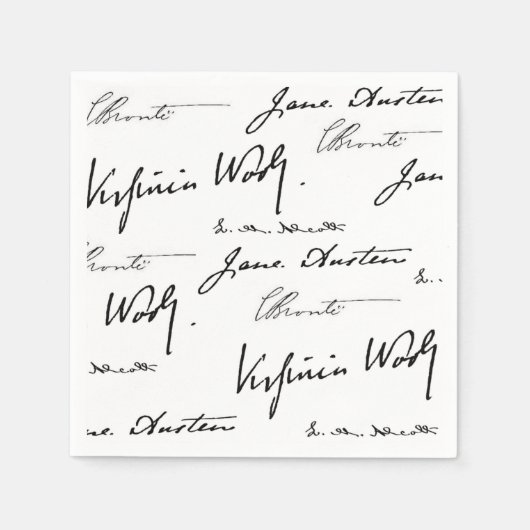 CBrontë Jane. Austen
CBrontë
Virginia Woolf. Jan
L. M. Alcott
Brontë Jane. Austen
L..
CBrontë
Woolf.
Virginia Woolf
Alcott
ne. Austen
L. M. Alcott